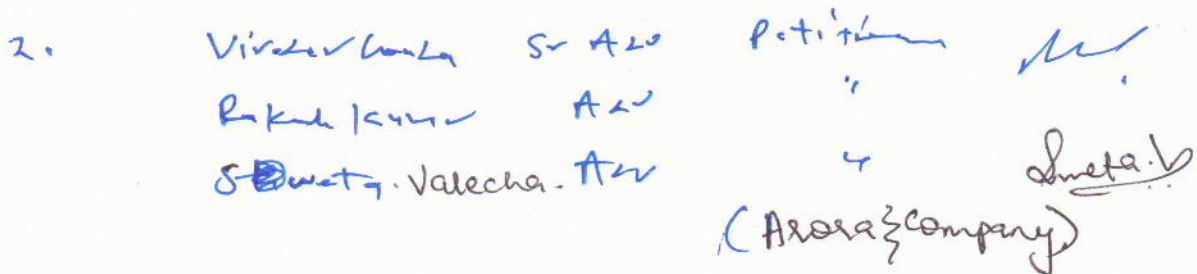 2. Virender Ganda Sr Adv Petitioner
Rakesh Kumar Adv "
Sweta. Valecha. Adv " Sweta.V
(Arora & Company)